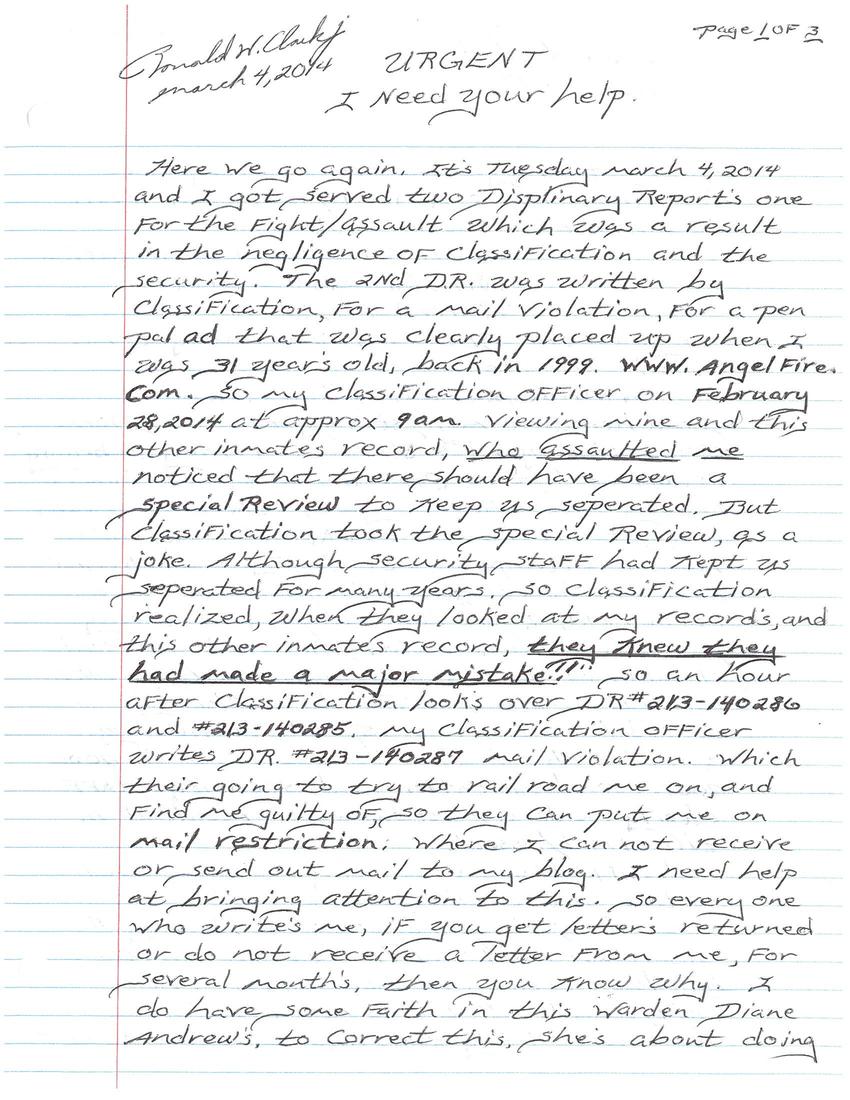 Page 1 OF 3
Ronald W. Clark Jr
March 4, 2014
URGENT
I Need your help.
Here we go again. It's Tuesday March 4, 2014
and I got served two Displinary Report's one
For the Fight/assault which was a result
in the negligence OF Classification and the
security. The 2nd D.R. was written by
Classification, For a mail violation, For a pen
pal ad that was clearly placed up when I
was 31 year's old, back in 1999. WWW. AngelFire.
Com. So my Classification OFFicer on February
28, 2014 at approx 9am. Viewing mine and this
other inmates record, who assaulted me
noticed that there should have been a
special Review to Keep us seperated. But
Classification took the special Review, as a
joke. Although security staFF had Kept us
seperated For many years. So Classification
realized, when they looked at my record's, and
this other inmates record, they Knew they
had made a major mistake!!!" So an hour
aFter Classification looks over DR#213-140286
and #213-140285. My Classification OFFicer
writes DR. #213-140287 Mail Violation. Which
their going to try to rail road me on, and
Find me guilty OF, so they can put me on
mail restriction. Where I can not receive
or send out mail to my blog. I need help
at bringing attention to this. So every one
who write's me, iF you get letter's returned
or do not receive a letter From me, For
several month's, then you Know why. I
do have some Faith in this Warden Diane
Andrew's, to Correct this, she's about doing